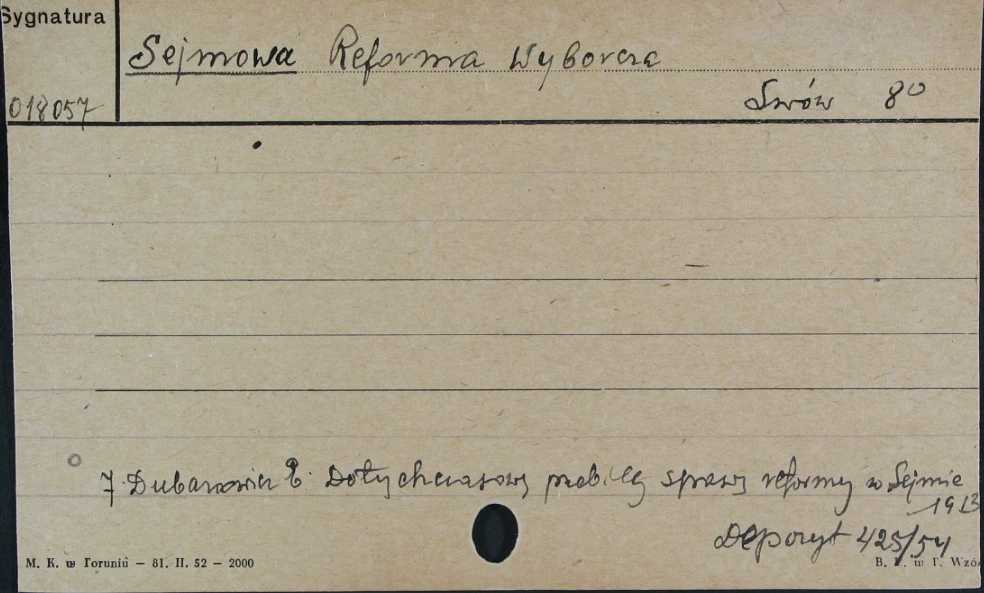 Sygnatura
Sejmowa Reforma Wyborcza
018057
Lwów 8⁰
7. Dubanowicz E. Dotychczasowy przebieg sprawy reformy w Sejmie
1913
Depozyt 425/54
M. K. w Toruniu – 81. II. 52 – 2000
B. P. w T. Wzó